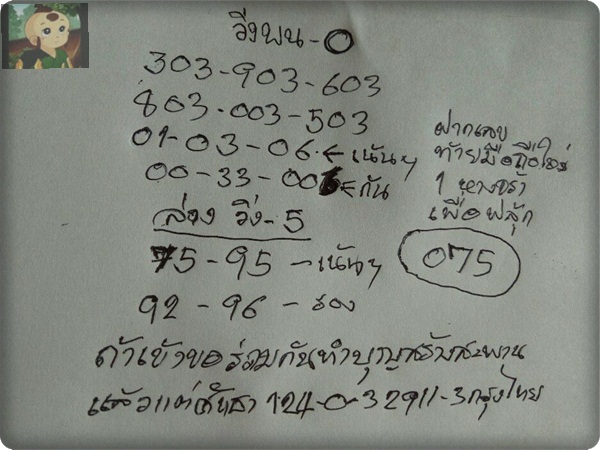 วิ่งบน-0
303-903-603
803-003-503
01-03-06.← เน้นๆ
00-33-006 ← กัน
ล่าง วิ่ง-5
75-95-เน้นๆ
92-96-รอง
ฝากเลข
ท้ายมือถือใหม่
1
เผื่อฟลุ๊ก
075
ถ้าเข้าขอร่วมกันทำบุญสร้างสะพาน
แล้วแต่ศรัทธา 124-0-32911-3กรุงไทย